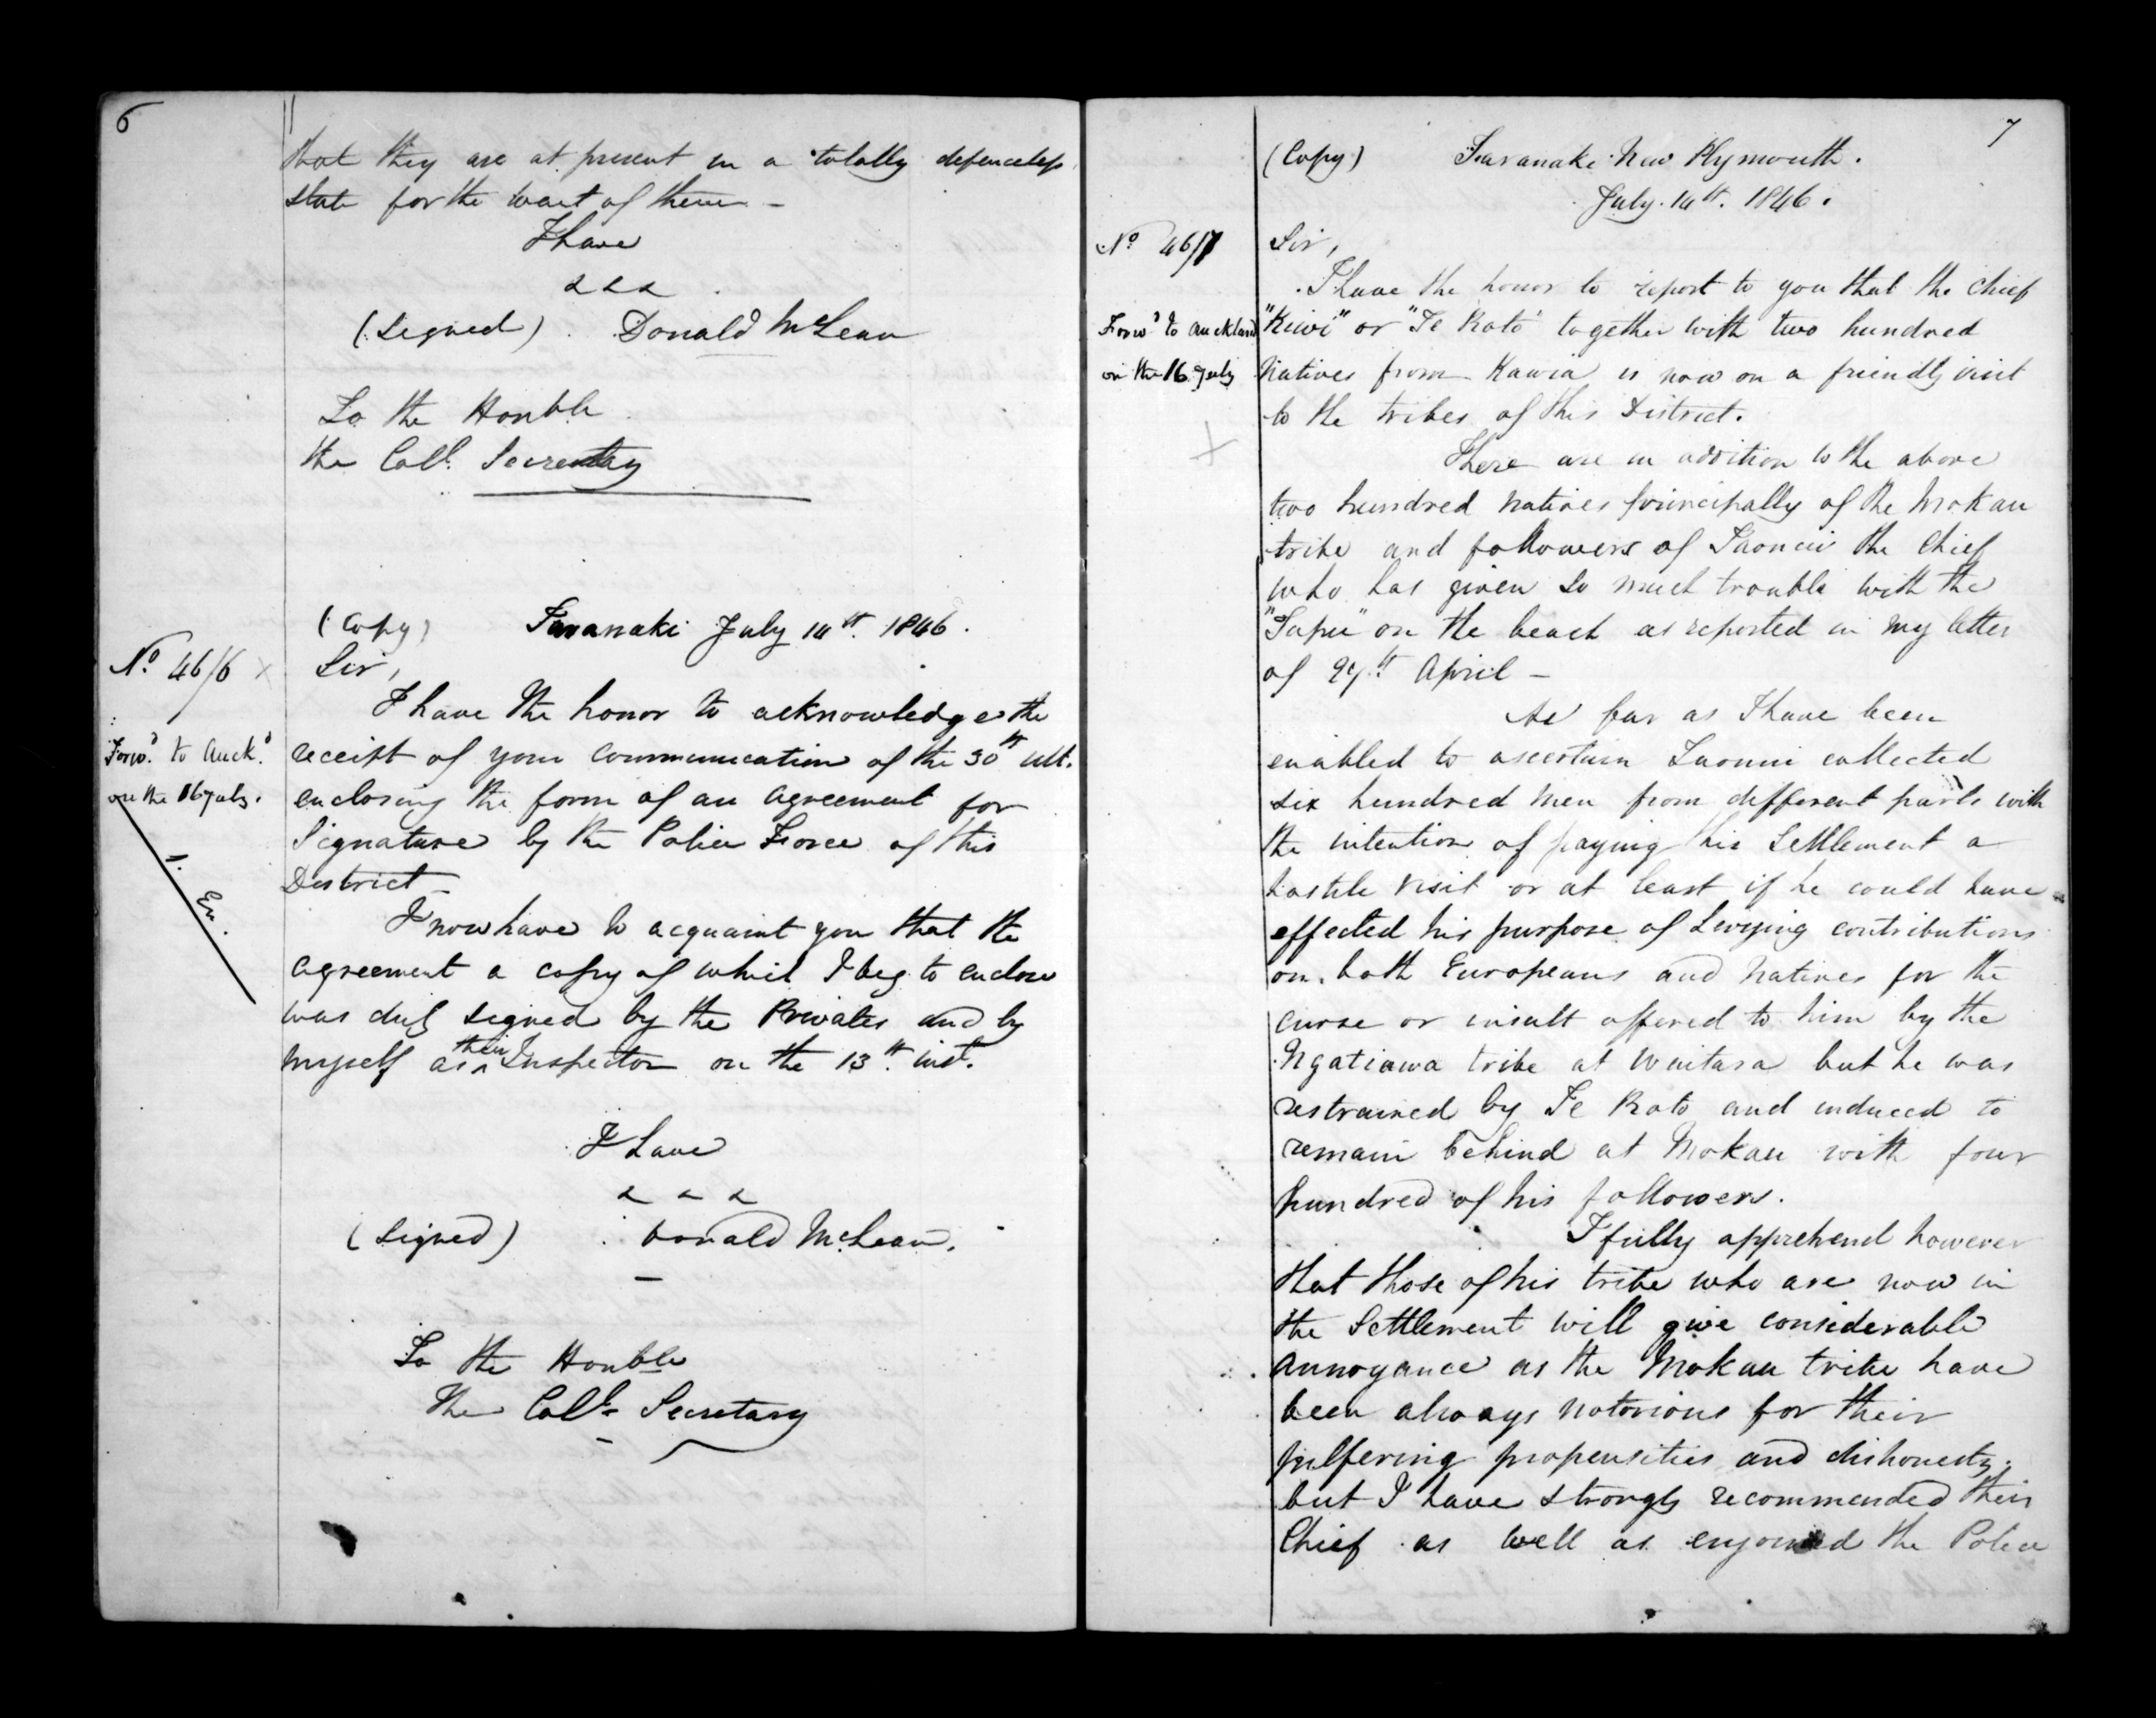 6
that they are at present in a totally defenceless
state for the want of them -
I have
&&&
(Signed) Donald McLean
To the Honble
the Coll. Secretary
(Copy) Taranaki July 14th. 1846.
No. 46/6
Sir,
I have the honor to acknowledge the
Forwd. to Auckd.
on the 16 July.
receipt of your communication of the 30th ult.
enclosing the form of an agreement for
Signature by the Police Force of this
District -
1. En.
I now have to acquaint you that the
agreement a copy of which I beg to enclose
was duly signed by the Privates and by
myself as their Inspector on the 13th. inst.
I have
& & &
(Signed) Donald McLean.
To the Honble
The Coll. Secretary
7
(Copy) Taranaki New Plymouth.
July. 14th. 1846.
No 46/7
Sir,
I have the honor to report to you that the Chief
Forwd to Auckland
on the 16 July
"Kiwi" or "Te Roto" together with two hundred
Natives from Kawia is now on a friendly visit
to the tribes of this District.
There are in addition to the above
two hundred natives principally of the Mokau
tribe and followers of Taonui the Chief
who has given so much trouble with the
"Tapu" on the beach as reported in my letter
of 29th. April -
As far as I have been
enabled to ascertain Taonui collected
six hundred men from different parts with
the intention of paying this Settlement a
hostile visit or at least if he could have
effected his purpose of Levying contributions
on both Europeans and Natives for the
curse or insult offered to him by the
Ngatiawa tribe at Waitara but he was
restrained by Te Roto and induced to
remain behind at Mokau with four
hundred of his followers.
I fully apprehend however
that those of his tribe who are now in
the Settlement will give considerable
annoyance as the Mokau tribe have
been always notorious for their
pilfering propensities and dishonesty.
but I have strongly recommended their
Chief as well as enjoined the Police